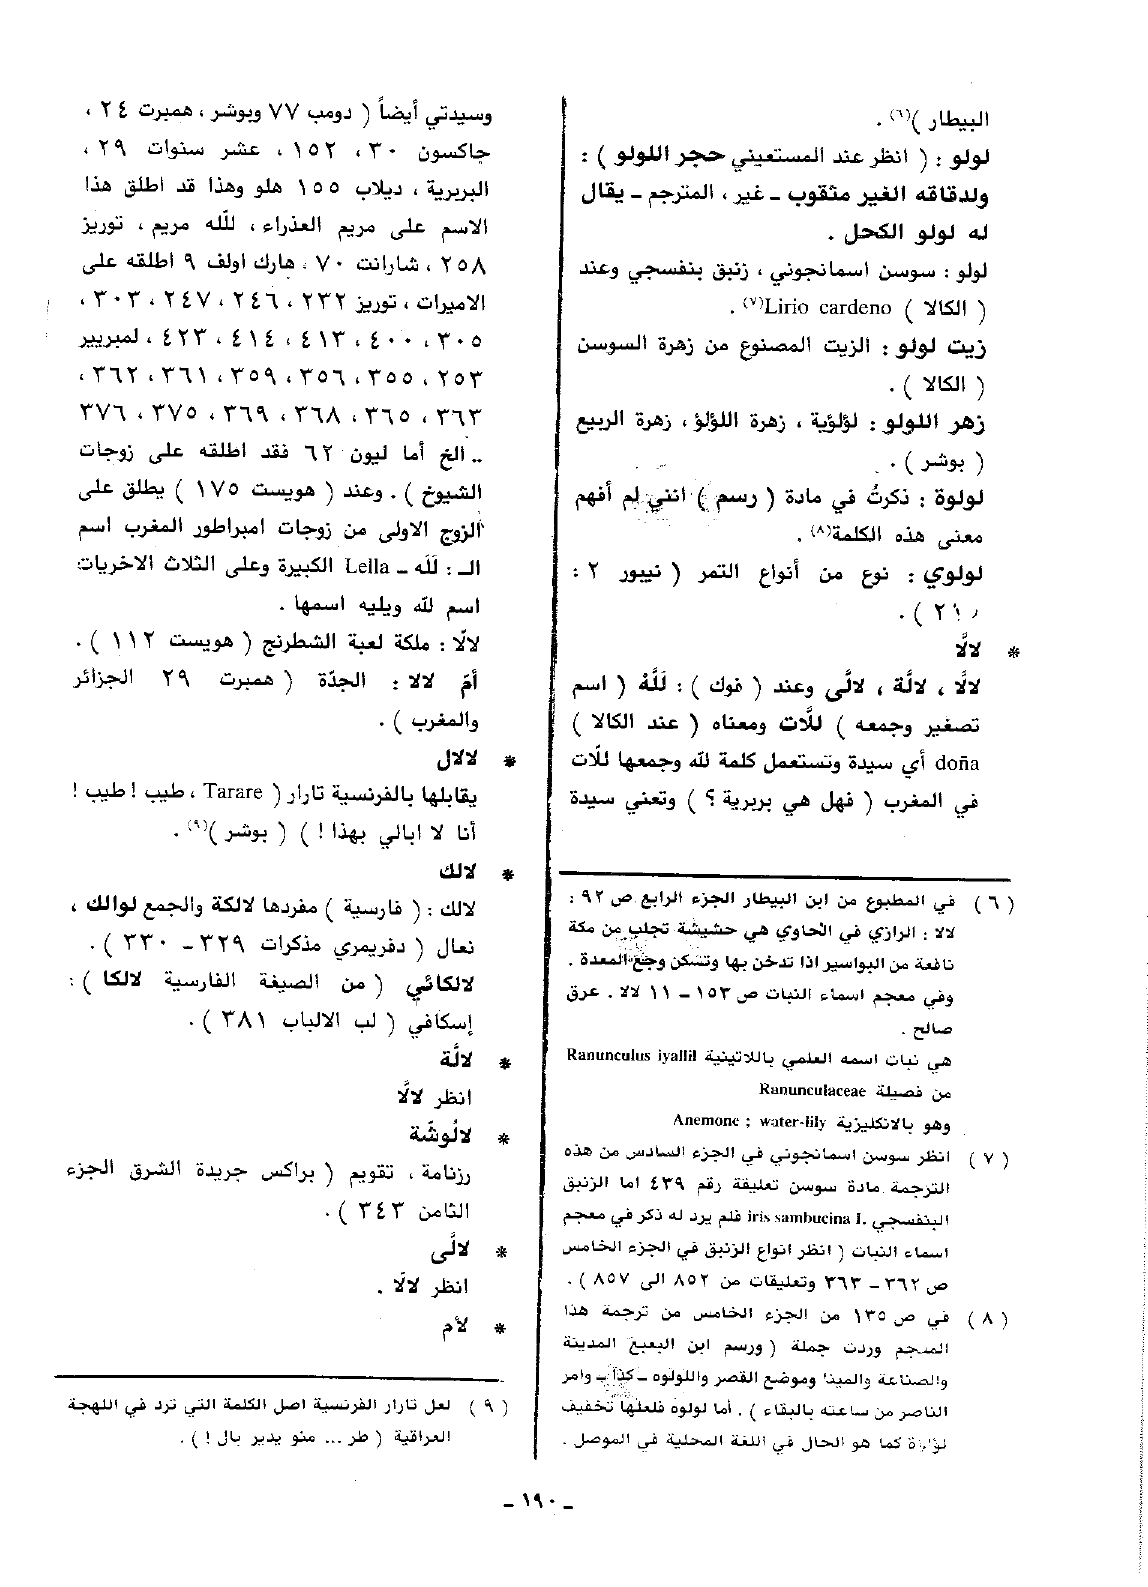 البيطار )(٦) .
لولو : ( انظر عند المستعيني حجر اللولو ) :
ولدقاقه الغير مثقوب ـ غير ، المترجم ـ يقال
له لولو الكحل .
لولو : سوسن اسمانجوني ، زنبق بنفسجي وعند
( الكالا ) Lirio cardeno(٧) .
زيت لولو : الزيت المصنوع من زهرة السوسن
( الكالا ) .
زهر اللولو : لؤلؤية ، زهرة اللؤلؤ ، زهرة الربيع
( بوشر ) .
لولوة : ذكرتُ في مادة ( رسم ) انني لم أفهم
معنى هذه الكلمة(٨) .
لولوي : نوع من أنواع التمر ( نيبور ٢ :
٢١٠ ) .
* لالَّا
لالَّا ، لالَّة ، لالَّى وعند ( فوك ) : لَلَّهْ ( اسم
تصغير وجمعه ) للَّات ومعناه ( عند الكالا )
doña أي سيدة وتستعمل كلمة لله وجمعها للّات
في المغرب ( فهل هي بربرية ؟ ) وتعني سيدة
( ٦ ) في المطبوع من ابن البيطار الجزء الرابع ص ٩٢ :
لالا : الرازي في الحاوي هي حشيشة تجلب من مكة
نافعة من البواسير اذا تدخن بها وتسكن وجع المعدة .
وفي معجم اسماء النبات ص ١٥٣ ـ ١١ لالا . عرق
صالح .
هي نبات اسمه العلمي باللاتينية Ranunculus iyallil
من فصيلة Ranunculaceae
وهو بالانكليزية Anemone ; water-lily
( ٧ ) انظر سوسن اسمانجوني في الجزء السادس من هذه
الترجمة مادة سوسن تعليقة رقم ٤٣٩ اما الزنبق
البنفسجي iris sambucina I. فلم يرد له ذكر في معجم
اسماء النبات ( انظر انواع الزنبق في الجزء الخامس
ص ٣٦٢ ـ ٣٦٣ وتعليقات من ٨٥٢ الى ٨٥٧ ) .
( ٨ ) في ص ١٣٥ من الجزء الخامس من ترجمة هذا
المعجم وردت جملة ( ورسم ابن البعبع المدينة
والصناعة والمينا وموضع القصر واللولوه ـ كذا ـ وامر
الناصر من ساعته بالبقاء ) . أما لولوه فلعلها تخفيف
لؤلؤة كما هو الحال في اللغة المحلية في الموصل .
وسيدتي أيضاً ( دومب ٧٧ وبوشر ، همبرت ٢٤ ،
جاكسون ٣٠ ، ١٥٢ ، عشر سنوات ٢٩ ،
البربرية ، ديلاب ١٥٥ هلو وهذا قد اطلق هذا
الاسم على مريم العذراء ، لله مريم ، توريز
٢٥٨ ، شارانت ٧٠ ، هارك اولف ٩ اطلقه على
الاميرات ، توريز ٢٣٢ ، ٢٤٦ ، ٢٤٧ ، ٣٠٣ ،
٣٠٥ ، ٤٠٠ ، ٤١٣ ، ٤١٤ ، ٤٢٣ ، لمبريير
٢٥٣ ، ٣٥٥ ، ٣٥٦ ، ٣٥٩ ، ٣٦١ ، ٣٦٢ ،
٣٦٣ ، ٣٦٥ ، ٣٦٨ ، ٣٦٩ ، ٣٧٥ ، ٣٧٦
.. الخ أما ليون ٦٢ فقد اطلقه على زوجات
الشيوخ ) . وعند ( هويست ١٧٥ ) يطلق على
الزوج الاولى من زوجات امبراطور المغرب اسم
الـ : لله ـ Lella الكبيرة وعلى الثلاث الاخريات
اسم لله ويليه اسمها .
لالّا : ملكة لعبة الشطرنج ( هويست ١١٢ ) .
أمّ لالا : الجدّة ( همبرت ٢٩ الجزائر
والمغرب ) .
* لالال
يقابلها بالفرنسية تارار ( Tarare ، طيب ! طيب !
أنا لا ابالي بهذا ! ) ( بوشر )(٩) .
* لالك
لالك : ( فارسية ) مفردها لالكة والجمع لوالك ،
نعال ( دفريمري مذكرات ٣٢٩ ـ ٣٣٠ ) .
لالكائي ( من الصيغة الفارسية لالكا ) :
إسكافي ( لب الالباب ٣٨١ ) .
* لالَّة
انظر لالَّا
* لالُوشَة
رزنامة ، تقويم ( براكس جريدة الشرق الجزء
الثامن ٣٤٣ ) .
* لالَّى
انظر لالّا .
* لأم
( ٩ ) لعل تارار الفرنسية اصل الكلمة التي ترد في اللهجة
العراقية ( طر ... منو يدير بال ! ) .
ـ ١٩٠ ـ